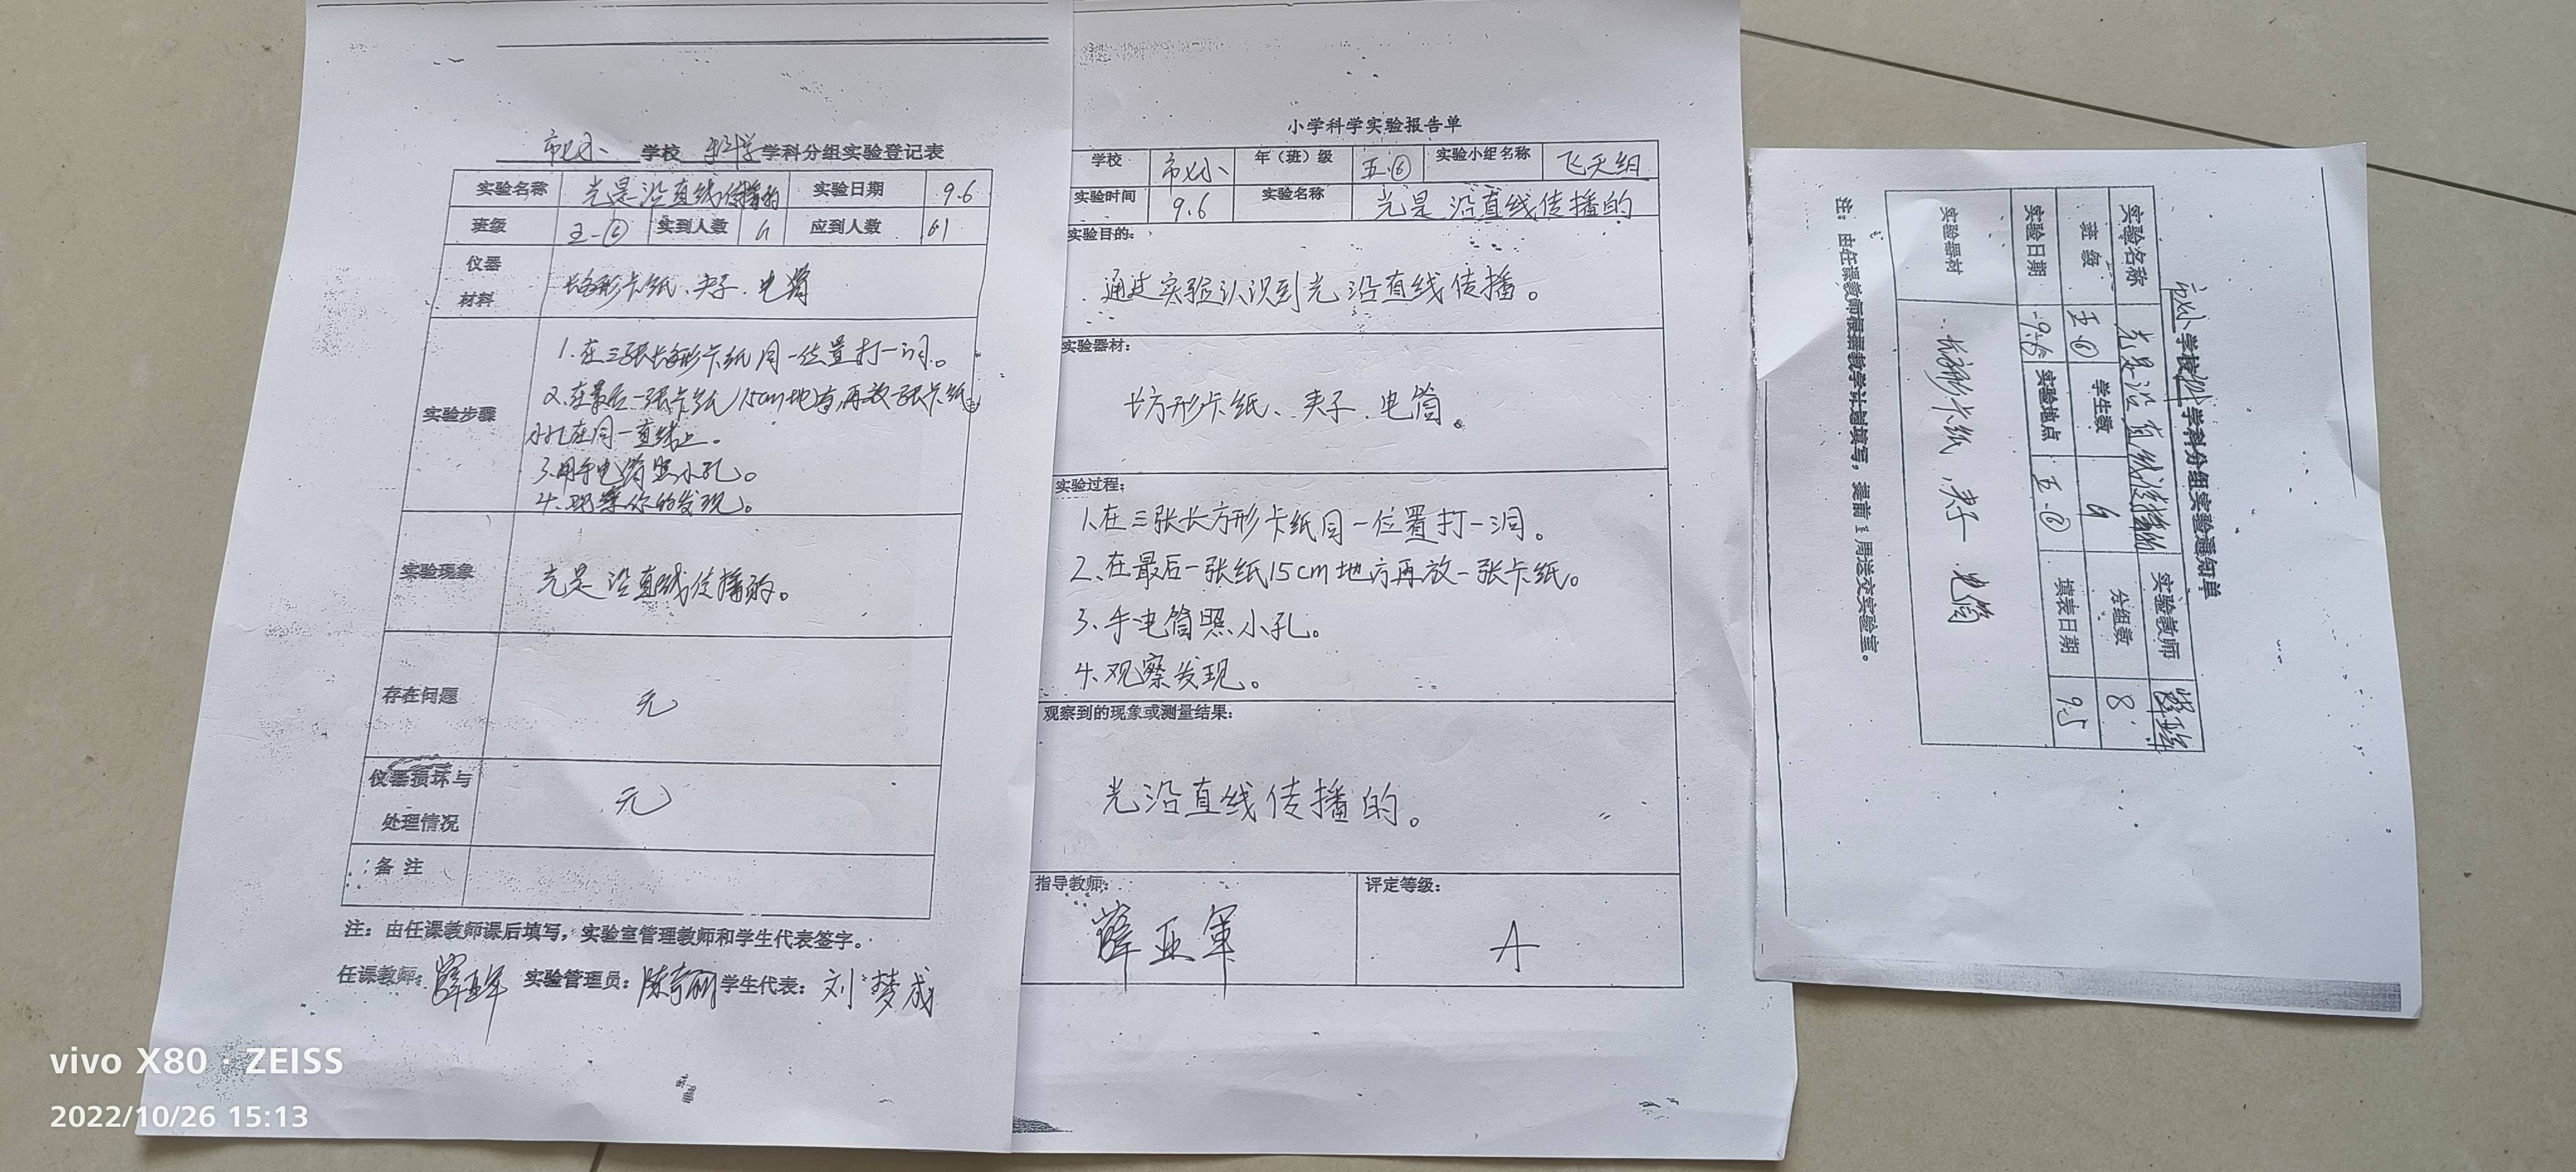 市七小 学校 科学 学科分组实验登记表
实验名称 光是沿直线传播的 实验日期 9.6
班级 五⑥ 实到人数 应到人数 61
仪器
材料
长方形卡纸、夹子、电筒
实验步骤
1.在三张长方形卡纸同一位置打一洞。
2.在最后一张卡纸15cm地方,再放一张卡纸,
小孔在同一直线上。
3.用手电筒照小孔。
4.观察你的发现。
实验现象 光是沿直线传播的。
存在问题 无
仪器损坏与
处理情况
无
备注
注：由任课教师课后填写，实验室管理教师和学生代表签字。
任课教师：薛亚军 实验管理员： 学生代表：刘梦成
小学科学实验报告单
学校 市七小 年（班）级 五.⑥ 实验小组名称 飞天组
实验时间 9.6 实验名称 光是沿直线传播的
实验目的：
通过实验认识到光沿直线传播。
实验器材：
长方形卡纸、夹子、电筒。
实验过程：
1.在三张长方形卡纸同一位置打一洞。
2.在最后一张纸15cm地方再放一张卡纸。
3.手电筒照小孔。
4.观察发现。
观察到的现象或测量结果：
光沿直线传播的。
指导教师： 薛亚军 评定等级： A
市七小 学校 科学 学科分组实验通知单
实验名称 光是沿直线传播的 实验教师 薛亚军
班级 五⑥ 学生数 分组数 8
实验日期 9.6 实验地点 五.⑥ 填表日期 9.5
实验器材 长方形卡纸、夹子 电筒
注：由任课教师根据教学计划填写，提前1周送交实验室。
vivo X80 · ZEISS
2022/10/26 15:13